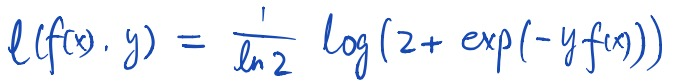 ℓ(f(x), y) = 1/ln 2 log(2 + exp(-y f(x)))